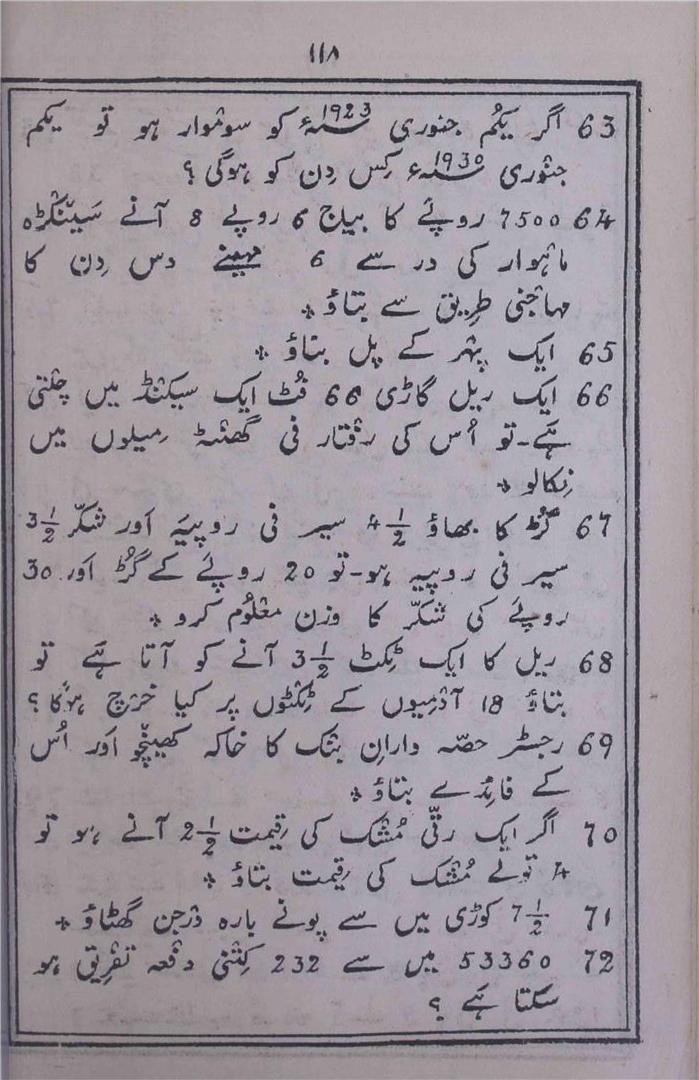 ۱۱۸
63 اگر یکم جنوری 1923ء کو سوموار ہو تو یکم
جنوری 1930ء کس دن کو ہوگی ؟
64 7500 روپے کا بیاج 6 روپے 8 آنے سینکڑہ
ماہوار کی در سے 6 مہینے دس دن کا
مہاجنی طریق سے بتاؤ ٭
65 ایک پہر کے پل بتاؤ ٭
66 ایک ریل گاڑی 66 فٹ ایک سیکنڈ میں چلتی
ہے۔ تو اُس کی رفتار فی گھنٹہ میلوں میں
نکالو ٭
67 گڑ کا بھاؤ 4 1/2 سیر فی روپیہ اور شکر 3 1/2
سیر فی روپیہ ہو۔ تو 20 روپے کے گڑ اور 30
روپے کی شکر کا وزن معلوم کرو ٭
68 ریل کا ایک ٹکٹ 3 1/2 آنے کو آتا ہے تو
بتاؤ 18 آدمیوں کے ٹکٹوں پر کیا خرچ ہوگا ؟
69 رجسٹر حصہ دارانِ بنک کا خاکہ کھینچو اور اُس
کے فائدے بتاؤ ٭
70 اگر ایک رتی مُشک کی قیمت 2 1/2 آنے ہو تو
4 تولے مُشک کی قیمت بتاؤ ٭
71 7 1/2 کوڑی میں سے پونے بارہ درجن گھٹاؤ ٭
72 53360 میں سے 232 کتنی دفعہ تفریق ہو
سکتا ہے ؟